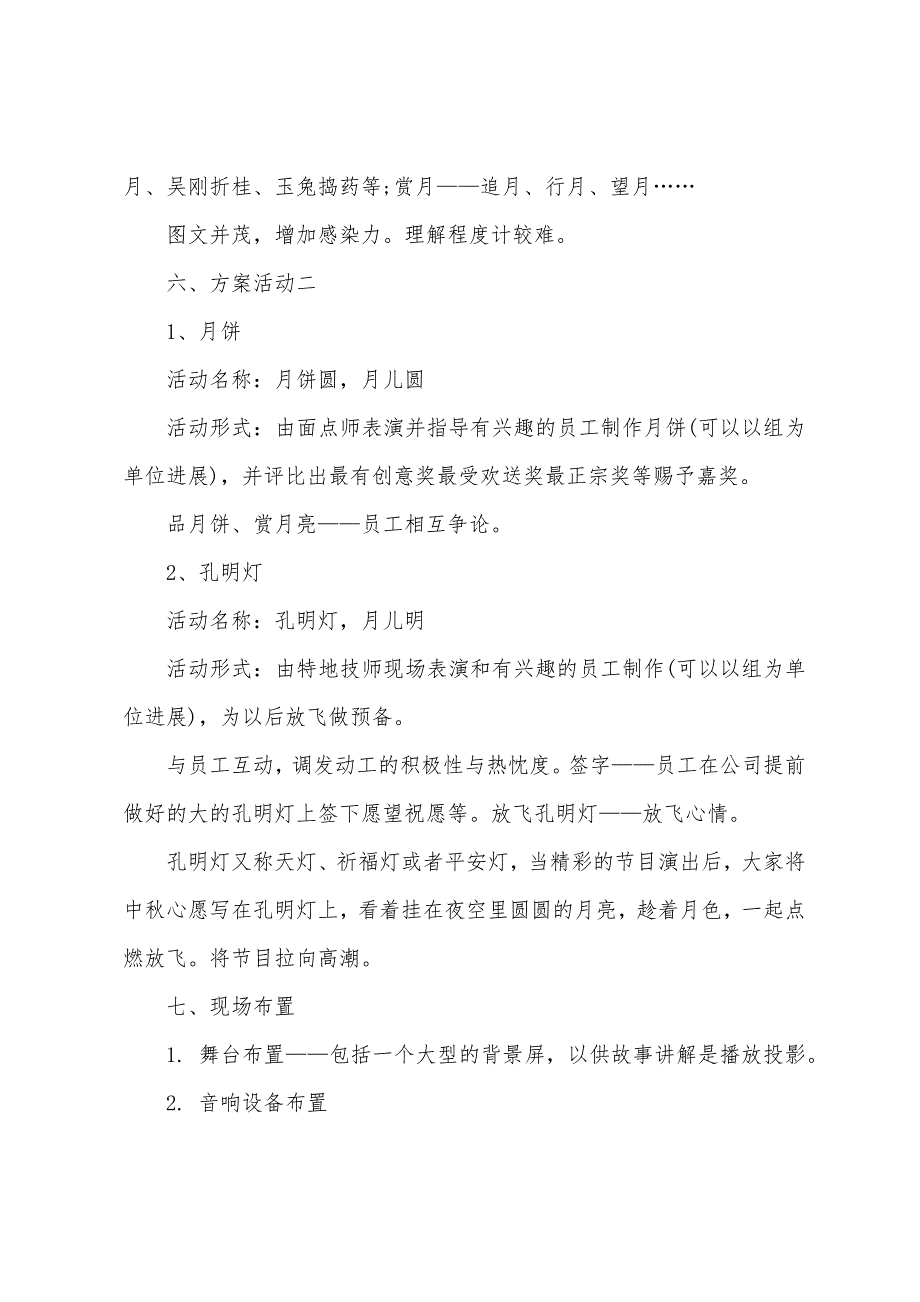 月、吴刚折桂、玉兔捣药等;赏月——追月、行月、望月……
图文并茂，增加感染力。理解程度计较难。
六、方案活动二
1、月饼
活动名称：月饼圆，月儿圆
活动形式：由面点师表演并指导有兴趣的员工制作月饼(可以以组为
单位进展)，并评比出最有创意奖最受欢送奖最正宗奖等赐予嘉奖。
品月饼、赏月亮——员工相互争论。
2、孔明灯
活动名称：孔明灯，月儿明
活动形式：由特地技师现场表演和有兴趣的员工制作(可以以组为单
位进展)，为以后放飞做预备。
与员工互动，调发动工的积极性与热忱度。签字——员工在公司提前
做好的大的孔明灯上签下愿望祝愿等。放飞孔明灯——放飞心情。
孔明灯又称天灯、祈福灯或者平安灯，当精彩的节目演出后，大家将
中秋心愿写在孔明灯上，看着挂在夜空里圆圆的月亮，趁着月色，一起点
燃放飞。将节目拉向高潮。
七、现场布置
1. 舞台布置——包括一个大型的背景屏，以供故事讲解是播放投影。
2. 音响设备布置